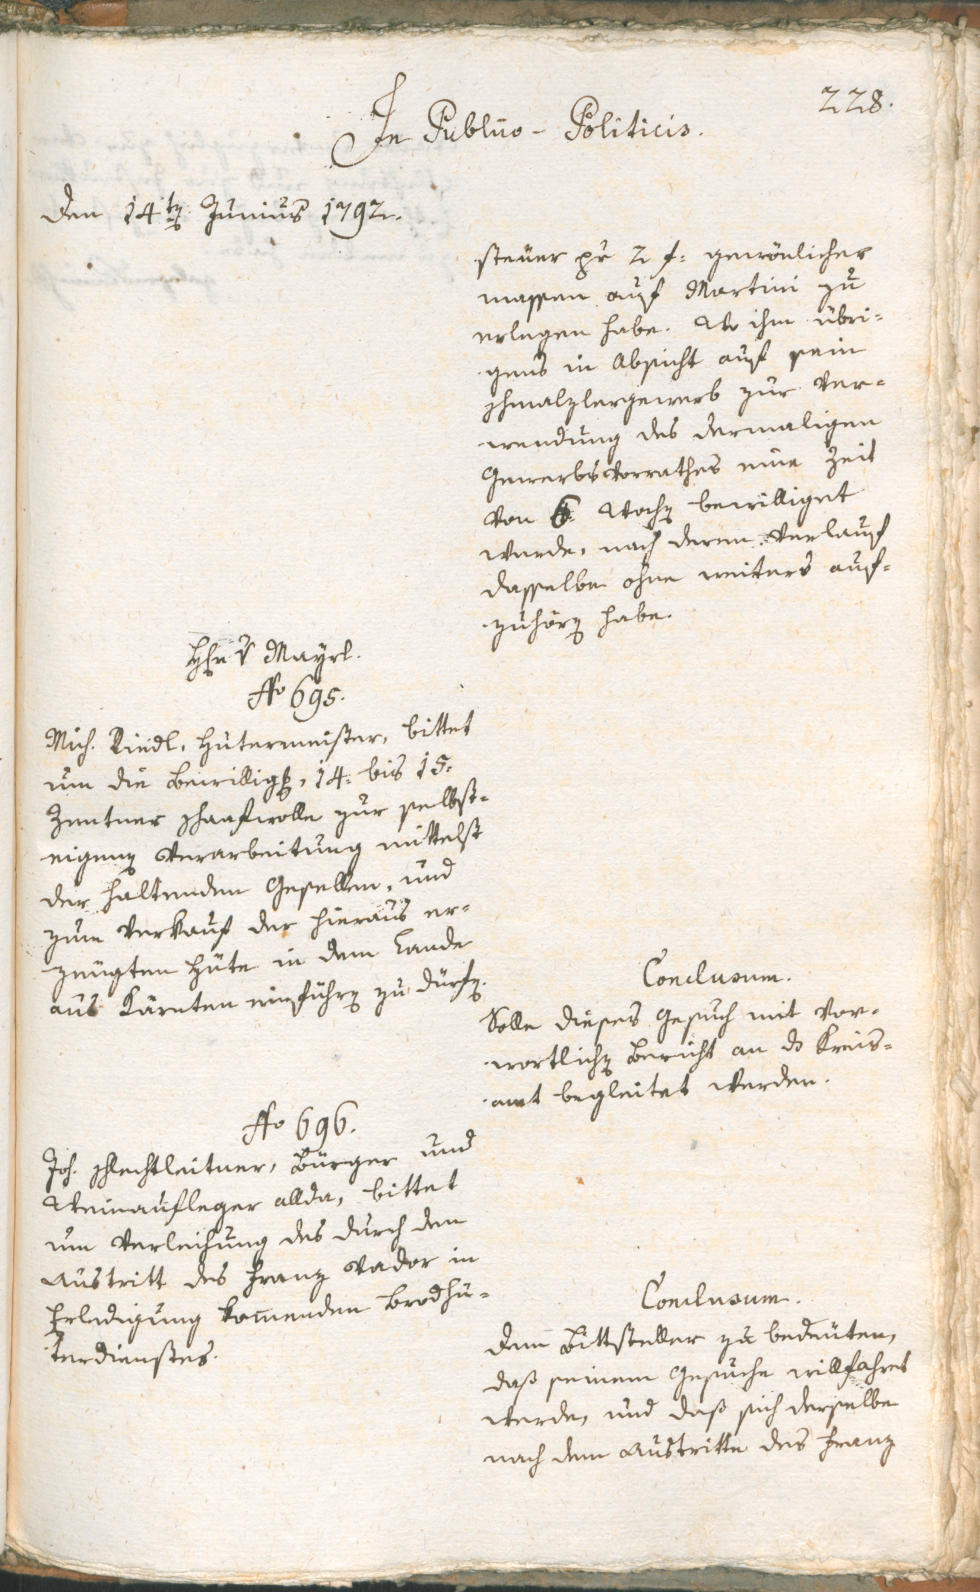 228.
In Publico-Politicis.
den 14ten Junius 1792.
steuer pr 2 f: gewönlicher
massen auf Martini zu
erlegen habe. Wo ihm übri=
gens in Absicht auf sein
schmalzlergewerb zur Ver=
wendung des dermaligen
Gewerbsvorrathes eine Zeit
von 6 Wochen bewilliget
werde, nach deren Verlauf
dasselbe ohne weiters auf=
zuhören habe.
Hhn v Mayrl.
No 695.
Mich. Riedl, Hutermeister, bittet
um die Bewilligg, 14: bis 15:
Zentner schaafwolle zur selbst=
eigenen Verarbeitung mittelst
der haltenden Gesellen, und
zum Verkauf der hieraus er=
zeugten Hüte in dem Lande
aus Kärnten einführen zu dürfen.
Conclusum.
Solle dieses Gesuch mit Vor=
wortlichen Bericht an das Kreis=
amt begleitet werden.
No 696.
Joh. schlechtleitner, Bürger und
Weinaufleger allda, bittet
um Verleihung des durch den
Austritt des Franz Vador in
Erledigung kommenden Brodhü=
terdienstes.
Conclusum.
Dem Bittsteller zu bedeuten,
daß seinem Gesuche willfahret
werde, und daß sich derselbe
nach dem Austritte des Franz